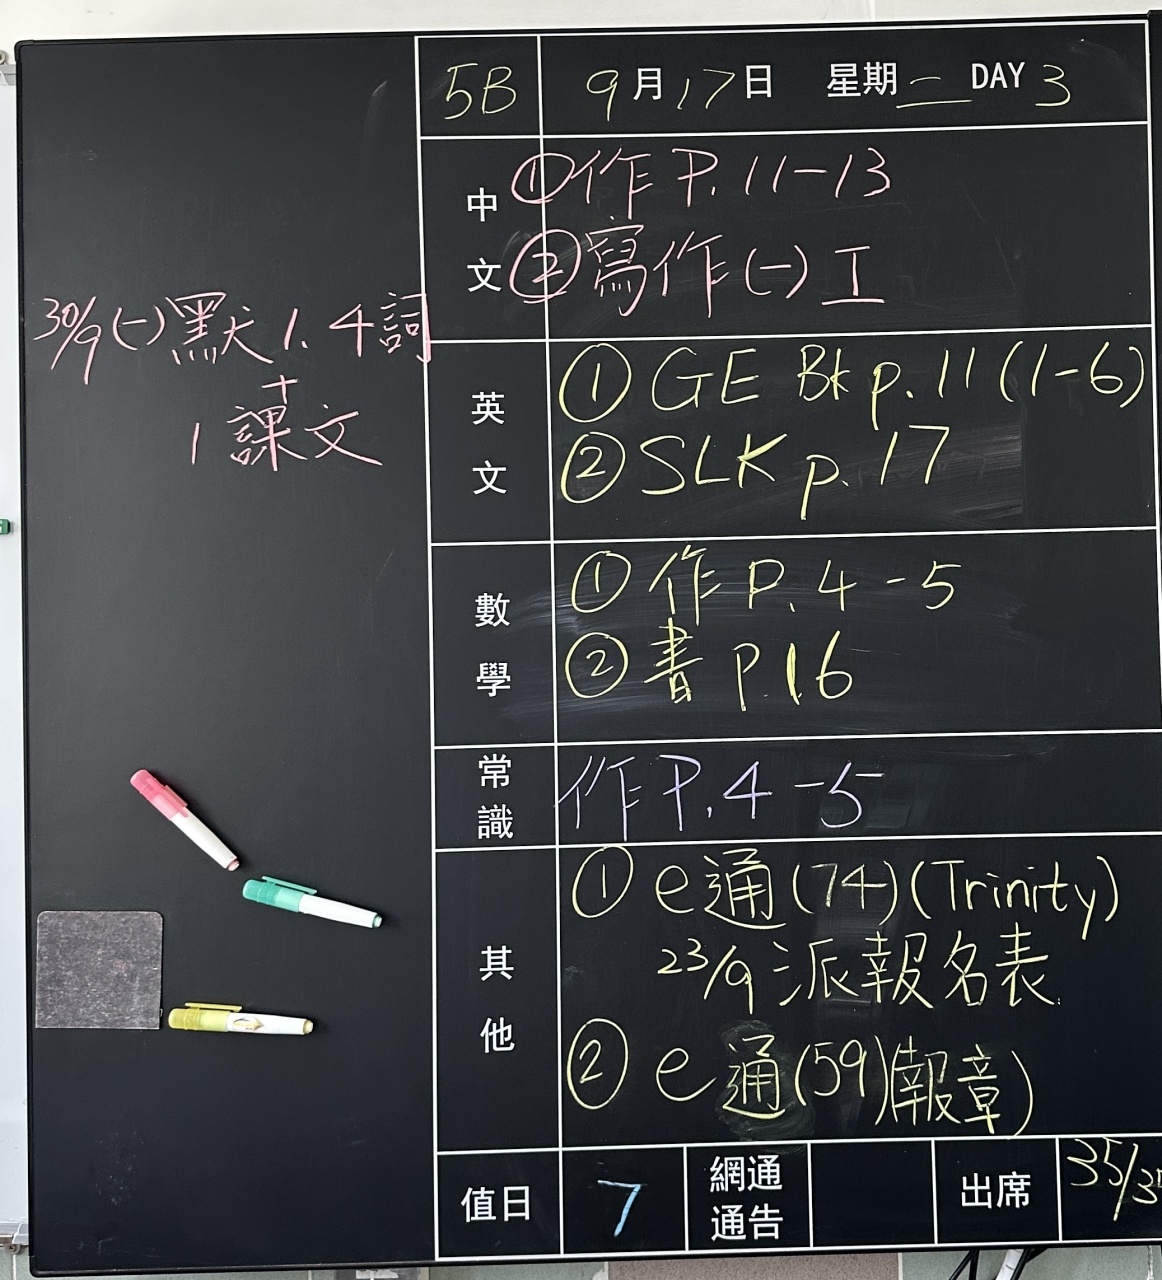 5B 9月17日 星期二 DAY 3
中文 ①作P.11-13
②寫作(一)工
30/9(一)默1.4詞
+
1課文
英文 ①GE Bk p.11(1-6)
②SLK p.17
數學 ①作P.4-5
②書P.16
常識 作P.4-5
其他 ①e通(74)(Trinity)
23/9派報名表
②e通(59)(報章)
值日 7 網通通告 出席 35/35